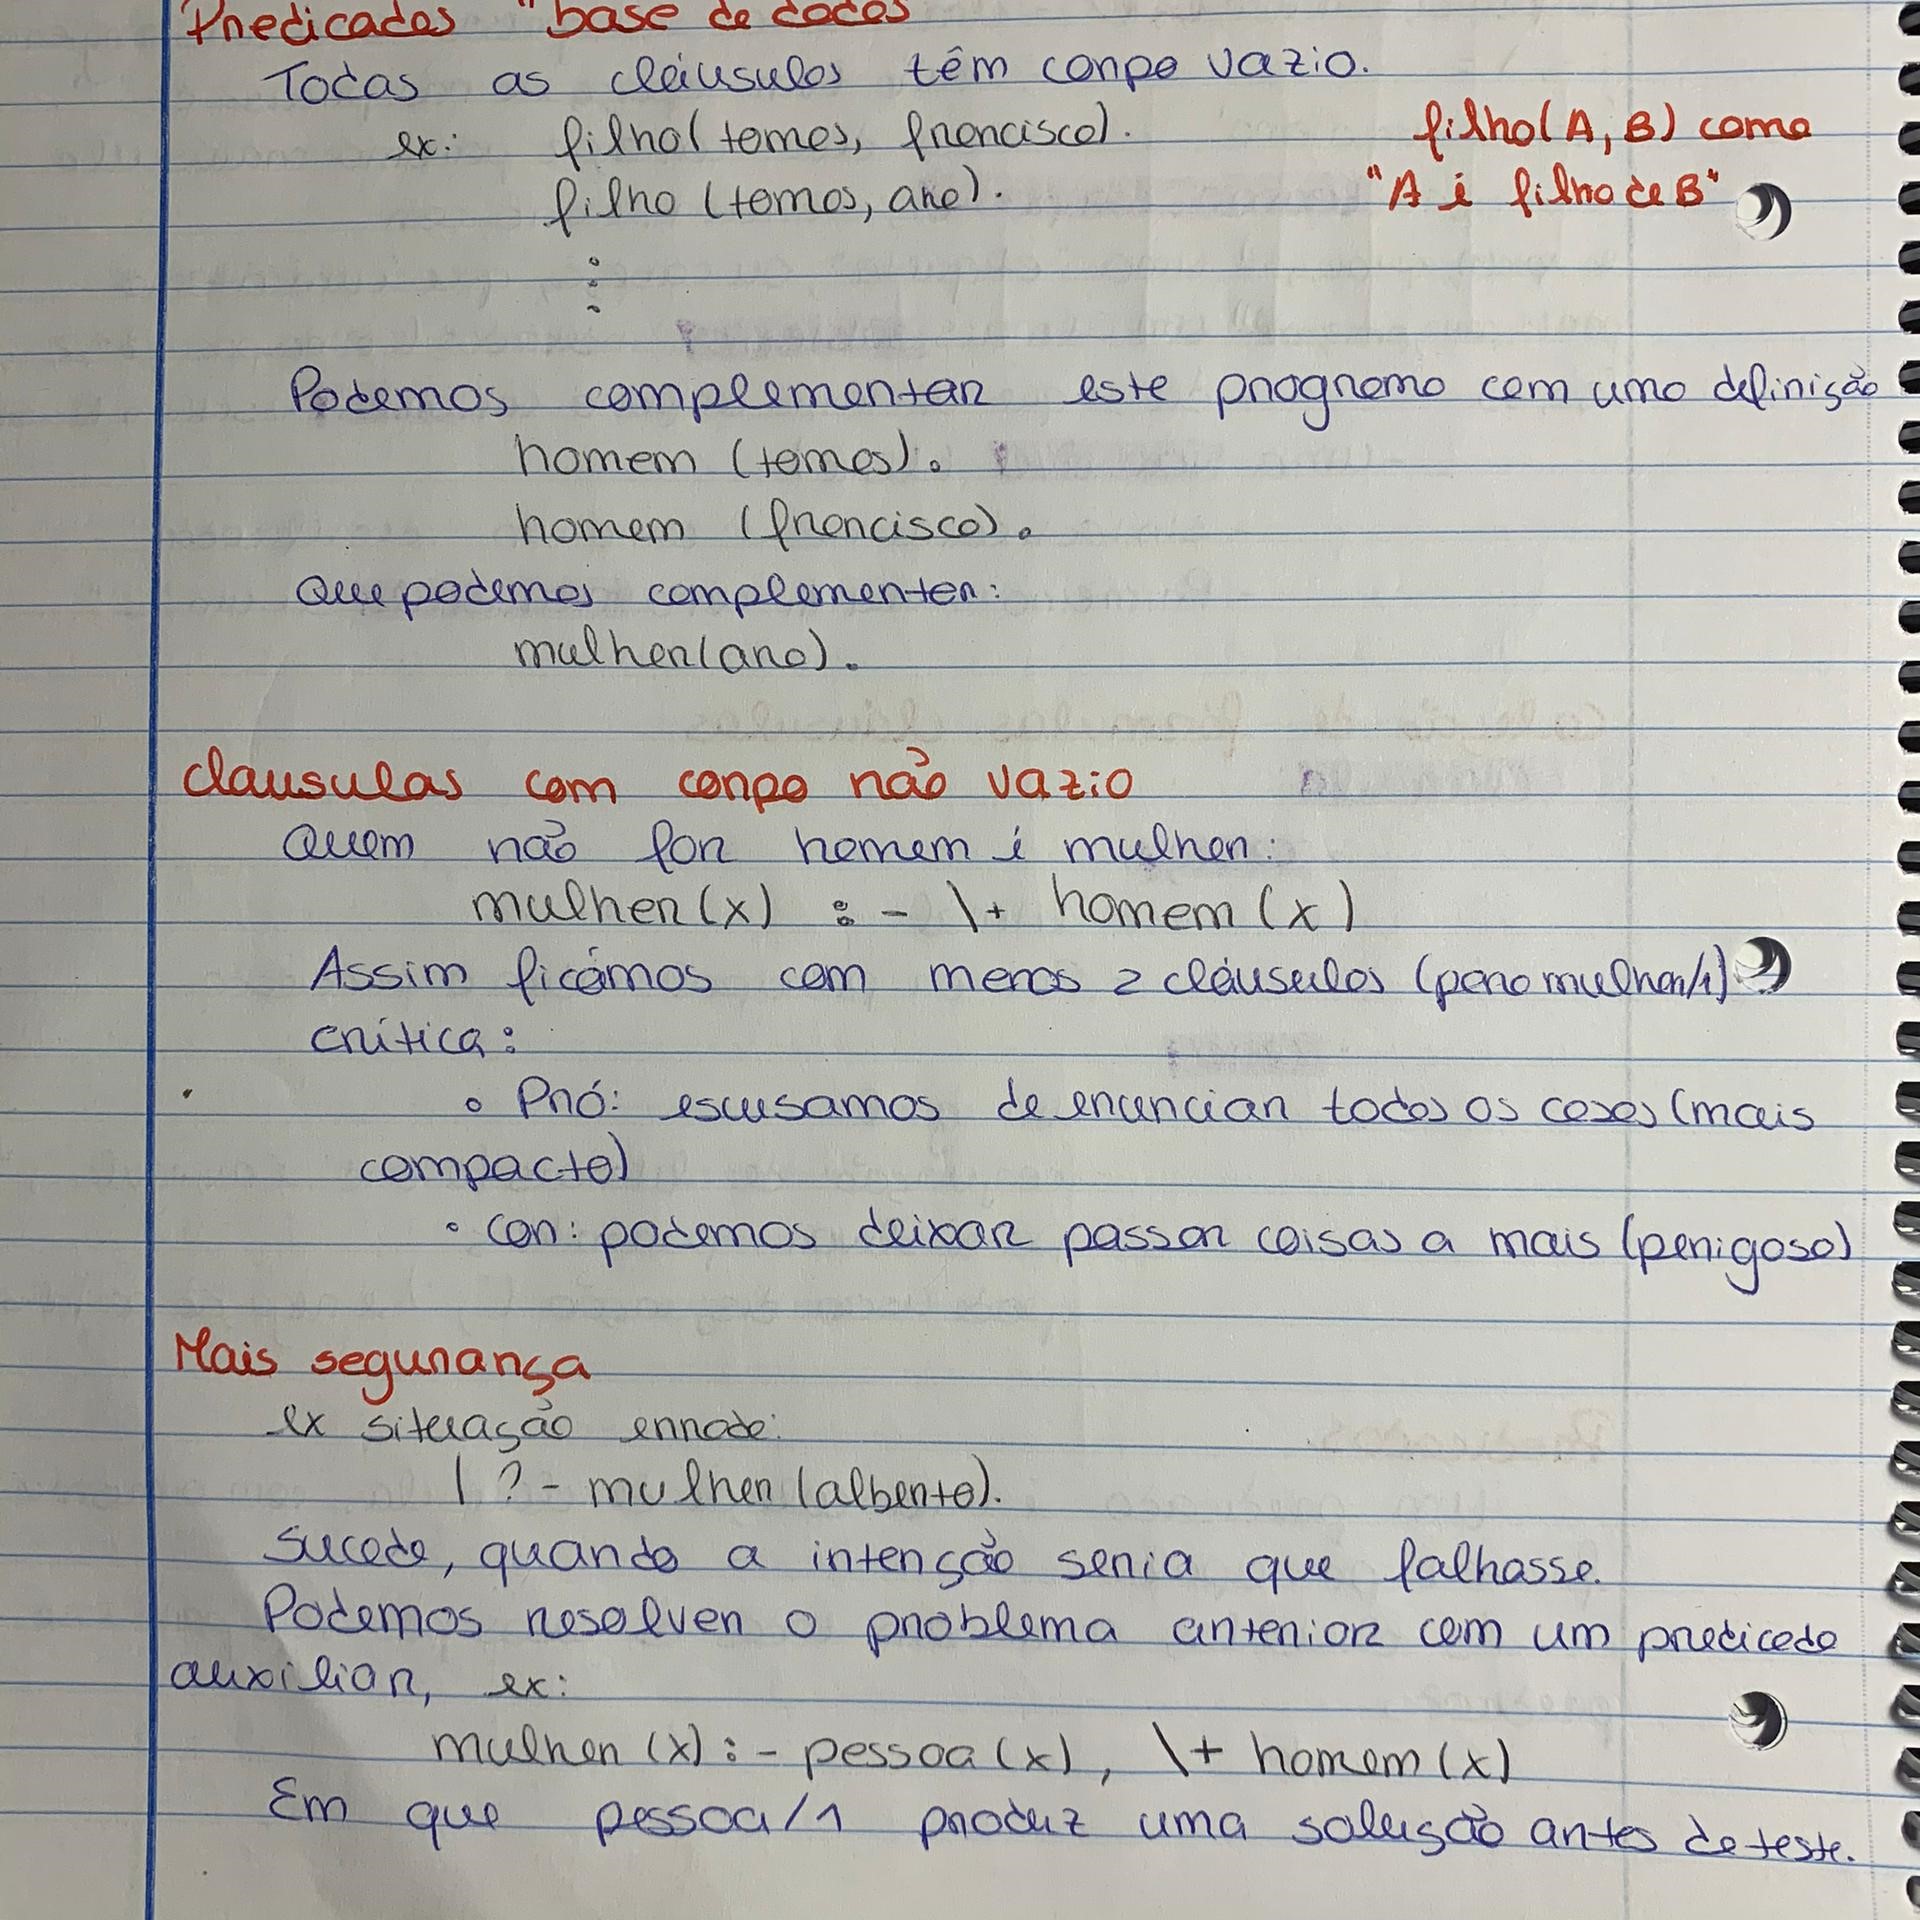 Predicados "base de dados
Todas as cláusulas têm corpo vazio.
ex: filho(tomas, francisco). filho(A, B) como
filho (tomas, ana). "A é filho de B"
Podemos complementar este programa com uma definição
homem (tomas).
homem (francisco).
Que podemos complementar:
mulher(ana).
clausulas com corpo não vazio
Quem não for homem é mulher:
mulher(x) :- \+ homem (x)
Assim ficámos com menos 2 cláusulas (para mulher/1)
crítica:
• Pró: escusamos de enunciar todos os casos (mais
compacto)
• con: podemos deixar passar coisas a mais (perigoso)
Mais segurança
ex situação errada:
| ?- mulher (alberto).
Sucede, quando a intenção seria que falhasse.
Podemos resolver o problema anterior com um predicado
auxiliar, ex:
mulher (x) :- pessoa (x), \+ homem (x)
Em que pessoa/1 produz uma solução antes de teste.